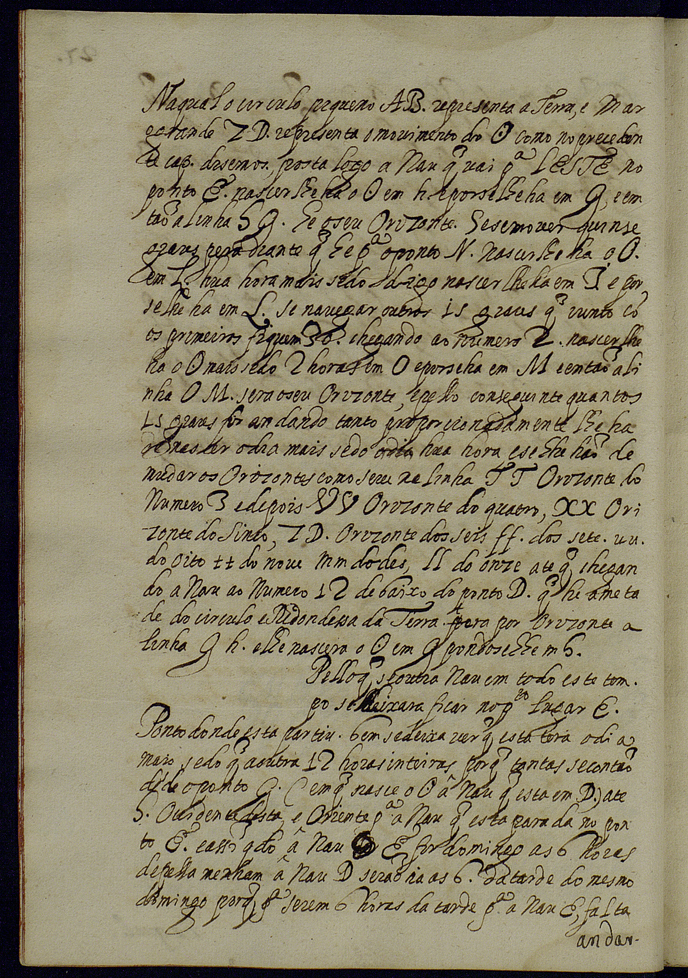 Na qual o circulo pequeno AB. representa a Terra, e o mar
e o grande Z D. representa o movimento do ʘ como no preceden
te cap. disemos. posta logo a Nau q̃ vai pª LESTE no
ponto E. nascerlheha o ʘ em h. e porselheha em G, e em
taõ a linha h G. he o seu Orizonte. Se se mover quinse
graus pera diante q̃ he pª o ponto N. nascerlheha o ʘ.
em I. hua hora mais sedo digo nascerlheha em I e por
selheha em L. se navegar outros 15 graus q̃ junto cõ
os primeiros fiquem 30. chegando ao numero 2. nascerlhe
ha o ʘ mais sedo 2 horas em O e porseha em M e entaõ a li
nha O M. sera o seu Orizonte, e pello conseguinte quantos
15 graus for andando tanto proporcionadamente lhe ha
de naser o dia mais sedo hua hora e selhe haõ de
mudar os Orizontes como se ve na linha TT Orizonte do
Numero 3 e depois VV Orizonte do quatro, XX Ori
zonte do Sinco, Z D. Orizonte dos seis ff. dos sete. uu.
do oito tt do nove mm do des, II do onze ate q̃ chegan
do a Nau ao Numero 12 debaixo do ponto D. q̃ he ameta
de do circulo e Redondessa da Terra. tera por Orizonte a
linha G h. elhe nascera o ʘ em G pondoselhe em h.
Pello q̃ se outra Nau em todo este tem.
po se deixara ficar no pro lugar E.
Ponto donde esta partiu. bem se deixa ver q̃ esta tera o dia
mais sedo q̃ a outra 12 horas inteiras porq̃ tantas se contaõ
desde o ponto G. (em q̃ nasce o ʘ â Nau q̃ esta em D.) ate
h. Ocidente desta, e Oriente pª a Nau q̃ esta parada no pon
to E. e assi q̃do â Nau E for domingo as 6 horas
de pella menham â Nau D seraõ ja as 6. da tarde do mesmo
domingo porq̃ pª serem 6 horas da tarde pª a Nau E, falta
andar-